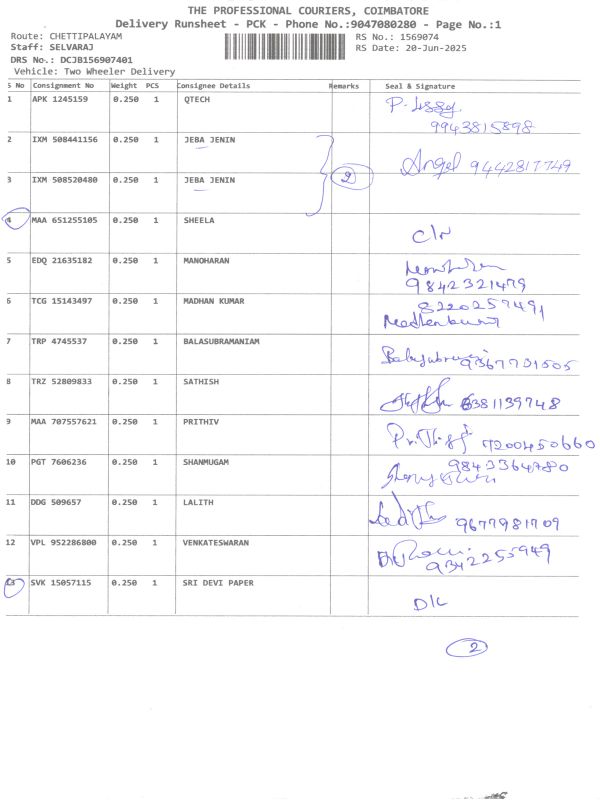 THE PROFESSIONAL COURIERS, COIMBATORE
Delivery Runsheet - PCK - Phone No.:9047080280 - Page No.:1
Route: CHETTIPALAYAM
RS No.: 1569074
Staff: SELVARAJ
RS Date: 20-Jun-2025
DRS No.: DCJB156907401
Vehicle: Two Wheeler Delivery
S No Consignment No Weight PCS Consignee Details Remarks Seal & Signature
1 APK 1245159 0.250 1 QTECH
9943815898
2 IXM 508441156 0.250 1 JEBA JENIN
Angel 9442817749
3 IXM 508520480 0.250 1 JEBA JENIN 2
4 MAA 651255105 0.250 1 SHEELA
5 EDQ 21635182 0.250 1 MANOHARAN
9842321479
6 TCG 15143497 0.250 1 MADHAN KUMAR 8220257491
7 TRP 4745537 0.250 1 BALASUBRAMANIAM
9367731505
8 TRZ 52809833 0.250 1 SATHISH
6381139748
9 MAA 707557621 0.250 1 PRITHIV
7200450660
10 PGT 7606236 0.250 1 SHANMUGAM 9843364780
11 DDG 509657 0.250 1 LALITH
9677981709
12 VPL 952286800 0.250 1 VENKATESWARAN
9342255949
13 SVK 15057115 0.250 1 SRI DEVI PAPER
D/L
2